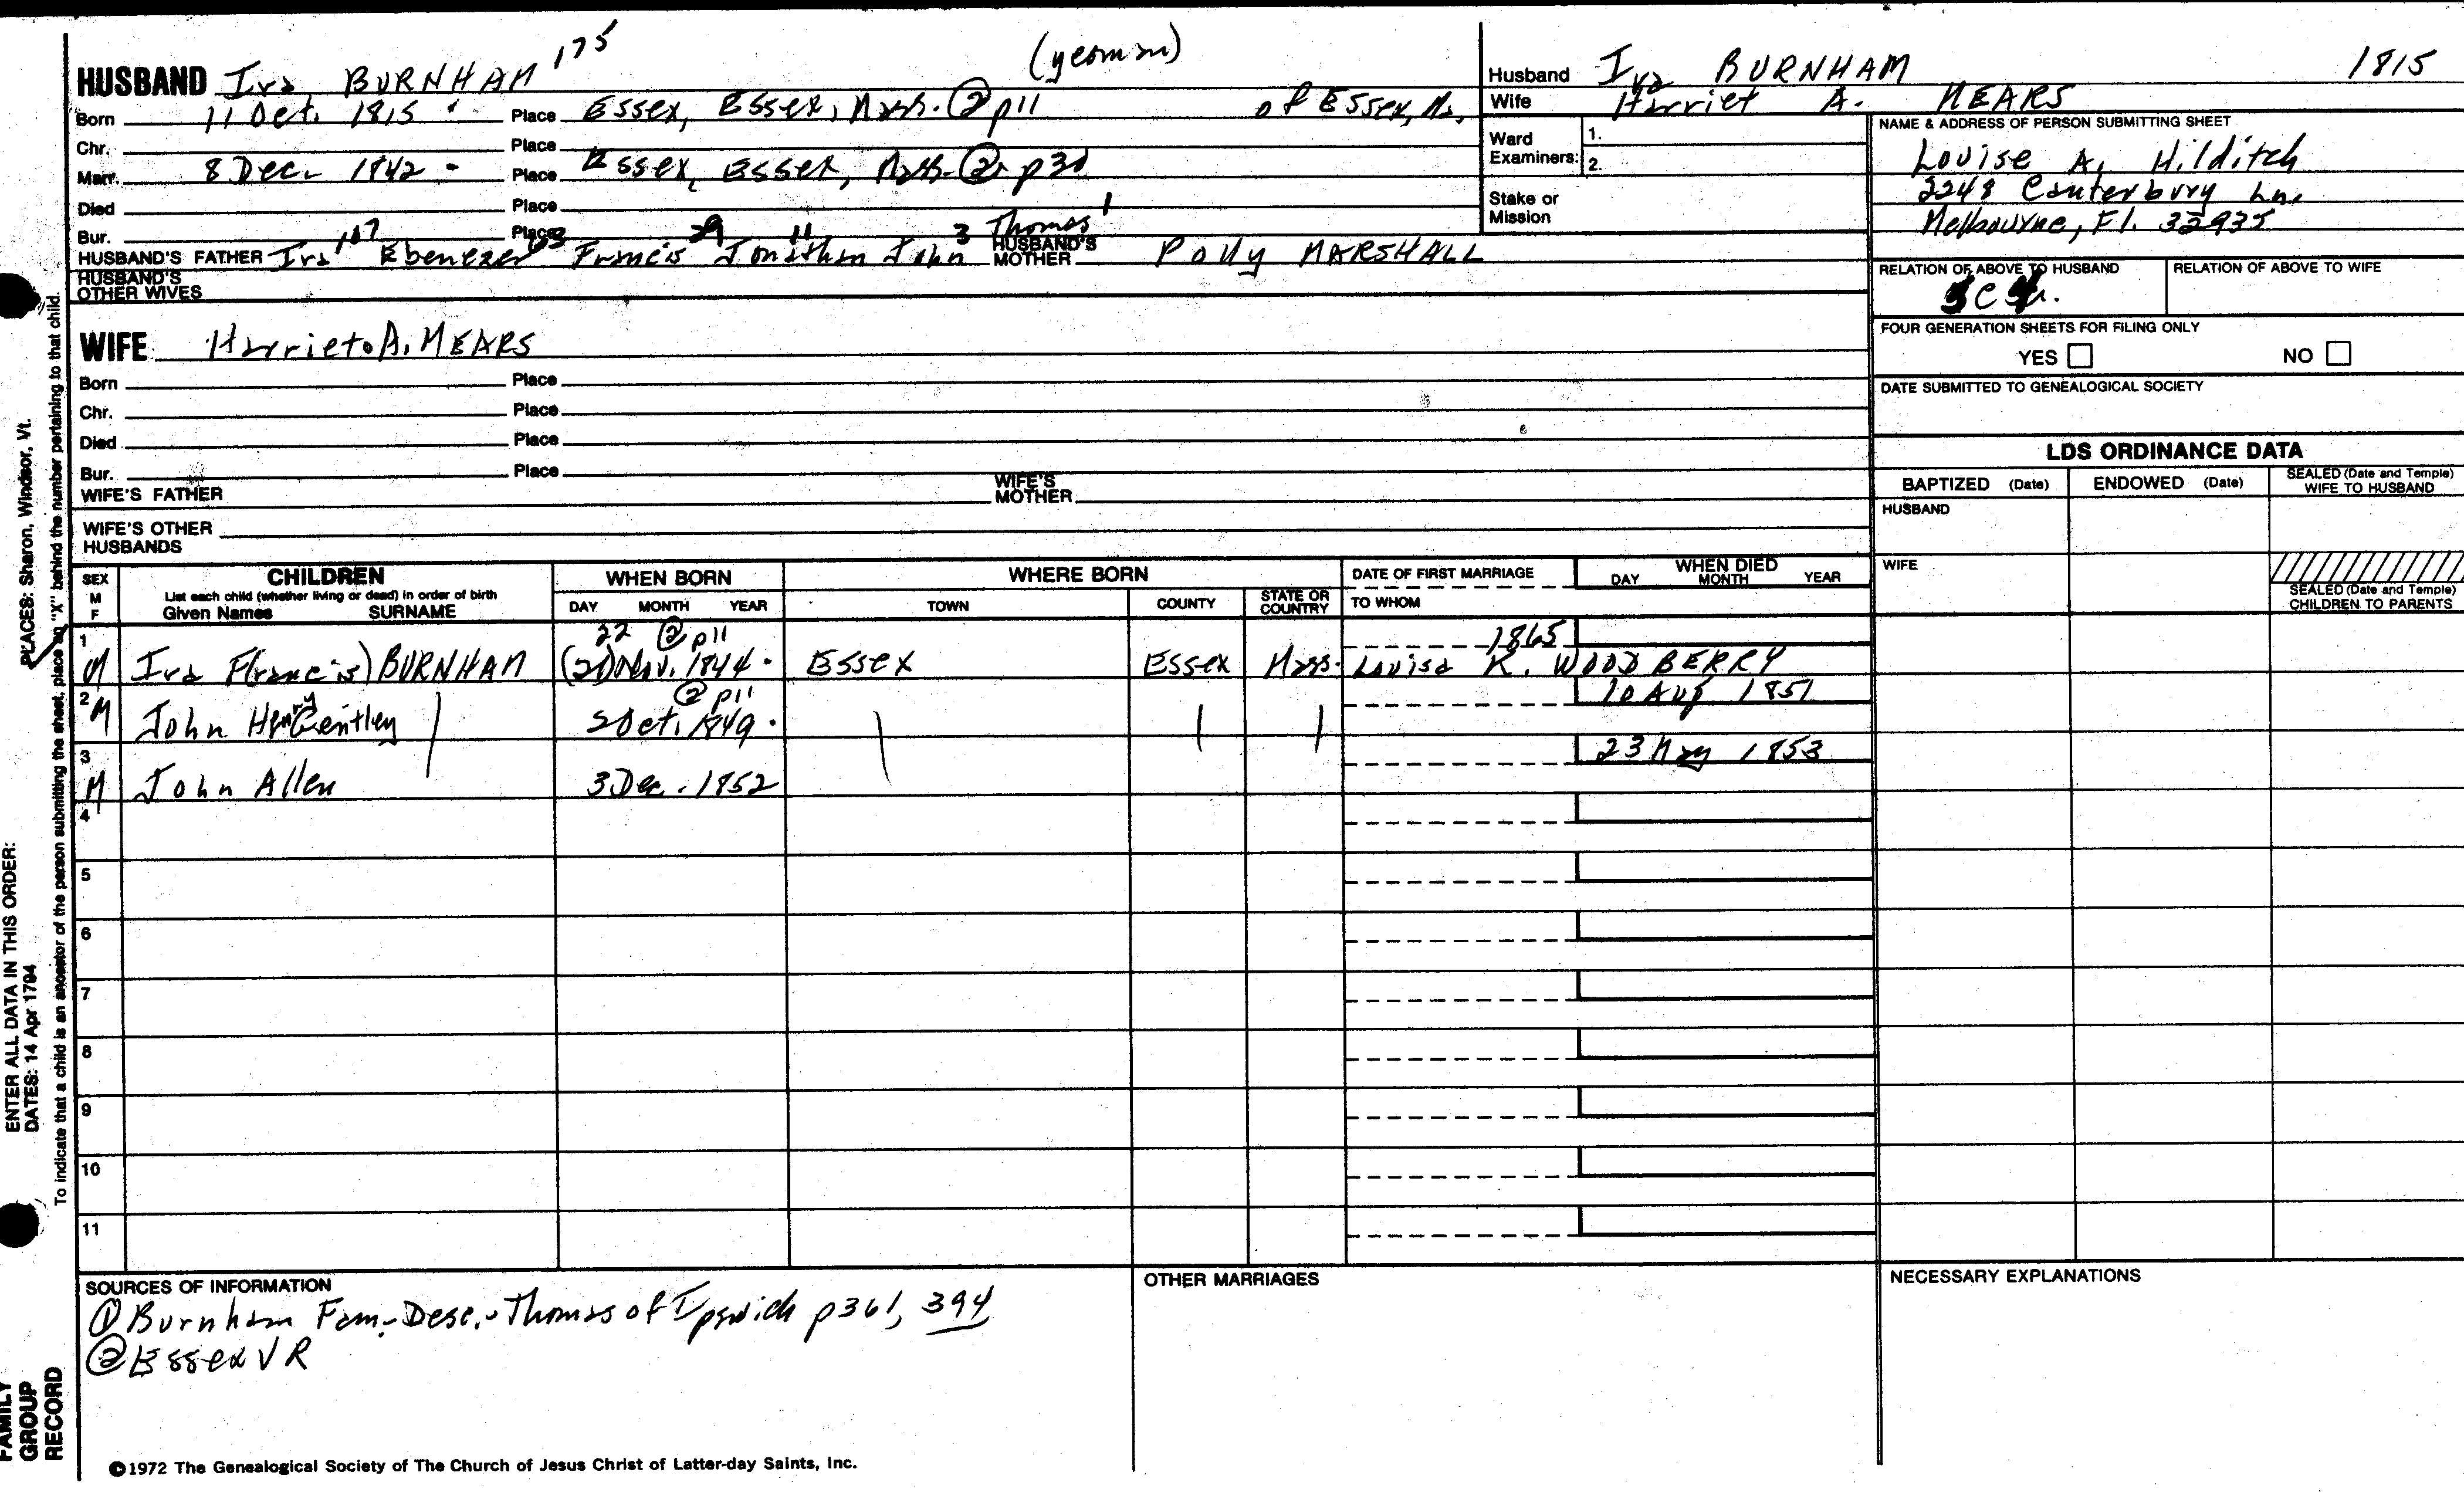 175
(yeoman)
HUSBAND Ira BURNHAM
Born 11 Oct. 1815 Place Essex, Essex, Mass. ② p11 of Essex, Ma.
Chr. Place
Marr. 8 Dec. 1842 Place Essex, Essex, Mass. ② p30
Died Place
Bur. Place
107 63 29 11 3 Thomas 1
HUSBAND'S FATHER Ira Ebenezer Francis Jonathan John HUSBAND'S MOTHER Polly MARSHALL
HUSBAND'S OTHER WIVES
Husband Ira BURNHAM 1815
Wife Harriet A. MEARS
Ward Examiners: 1.
2.
Stake or Mission
NAME & ADDRESS OF PERSON SUBMITTING SHEET
Louise A. Hilditch
2248 Canterbury Ln.
Melbourne, Fl. 32935
RELATION OF ABOVE TO HUSBAND RELATION OF ABOVE TO WIFE
FOUR GENERATION SHEETS FOR FILING ONLY
YES NO
DATE SUBMITTED TO GENEALOGICAL SOCIETY
WIFE Harriet A. MEARS
Born Place
Chr. Place
Died Place
Bur. Place
WIFE'S FATHER WIFE'S MOTHER
WIFE'S OTHER HUSBANDS
LDS ORDINANCE DATA
BAPTIZED (Date) ENDOWED (Date) SEALED (Date and Temple) WIFE TO HUSBAND
HUSBAND
WIFE
SEALED (Date and Temple) CHILDREN TO PARENTS
SEX M F CHILDREN WHEN BORN WHERE BORN DATE OF FIRST MARRIAGE WHEN DIED
List each child (whether living or dead) in order of birth
Given Names SURNAME DAY MONTH YEAR TOWN COUNTY STATE OR COUNTRY TO WHOM DAY MONTH YEAR
1 22 ② p11 1865
M Ira F(rancis) BURNHAM (21) Nov. 1844 Essex Essex Mass. Louisa K. WOODBERRY
2 ② p11 10 Aug 1851
M John Henry Gentley 5 Oct. 1849
3 23 May 1853
M John Allen 3 Dec. 1852
4
5
6
7
8
9
10
11
SOURCES OF INFORMATION
① Burnham Fam-Desc.-Thomas of Ipswich p361, 394
② Essex VR
OTHER MARRIAGES
NECESSARY EXPLANATIONS
©1972 The Genealogical Society of The Church of Jesus Christ of Latter-day Saints, Inc.
To indicate that a child is an ancestor of the person submitting the sheet, place an "X" behind the number pertaining to that child.
PLACES: Sharon, Windsor, Vt.
ENTER ALL DATA IN THIS ORDER:
DATES: 14 Apr 1794
FAMILY
GROUP
RECORD